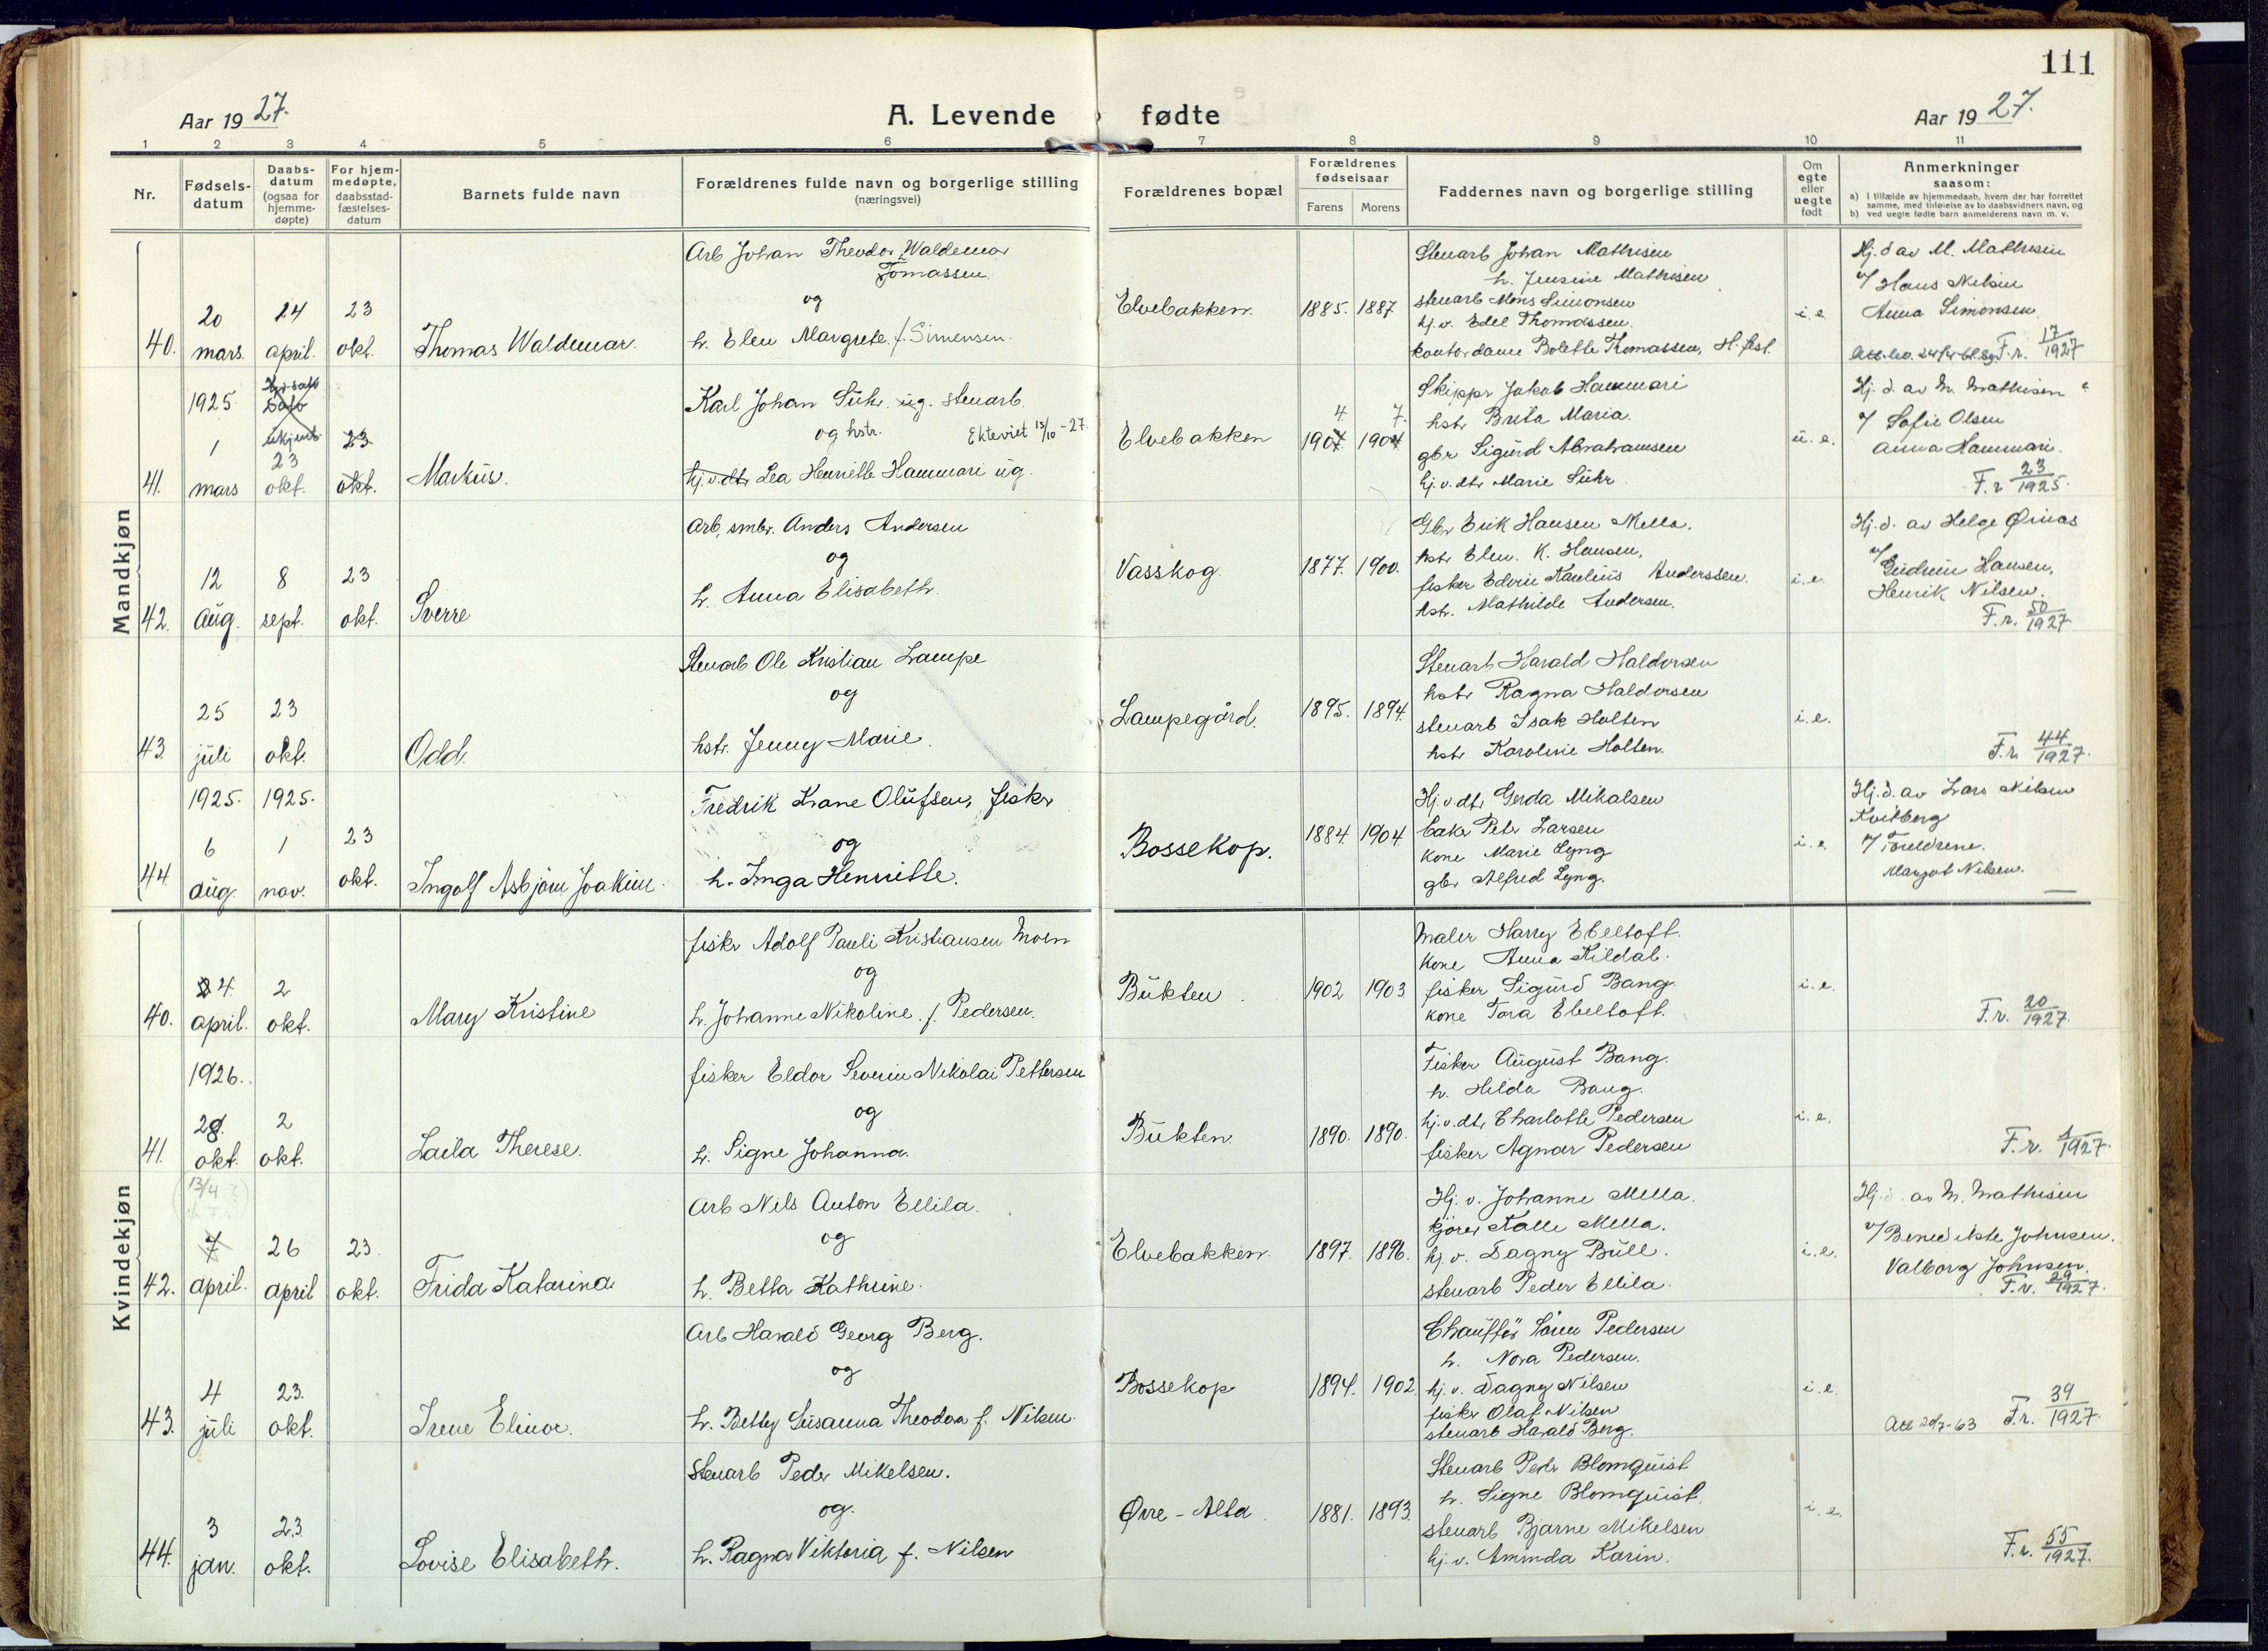 111
Aar 1927.
A. Levende fødte
Aar 1927.
1 2 3 4 5 6 7 8 9 10 11
Nr.
Fødsels-
datum
Daabs-
datum
(ogsaa for
hjemme-
døpte)
For hjem-
medøpte,
daabsstad-
fæstelses-
datum
Barnets fulde navn
Forældrenes fulde navn og borgerlige stilling
(næringsvei)
Forældrenes bopæl
Forældrenes
fødselsaar
Farens
Morens
Faddernes navn og borgerlige stilling
Om
egte
eller
uegte
født
Anmerkninger
saasom:
a) i tilfælde av hjemmedaab, hvem der har forrettet
samme, med tilføielse av to daabsvidners navn, og
b) ved uegte fødte barn anmelderens navn m. v.
Mandkjøn
40.
20
mars.
24
april.
23
okt.
Thomas Waldemar.
Arb Johan Theodor Waldemar
Tomassen.
og
h. Elen Margrete f. Simensen.
Elvebakken.
1885. 1887
Stenarb Johan Mathisen
h. Jensine Mathisen
stenarb Mons Simonsen
hj. v. Edel Thomassen.
kontordame Bolette Thomassen, H.fest.
i.e.
Hj. d av M. Mathisen
v/ Hans Nilsen
Anna Simonsen.
F.r. 17/1927
41.
1925
1
mars
ukjent
23
okt.
23
okt.
Markus.
Karl Johan Suhr. ug. stenarb.
og hstr. Ekteviet 15/10-27.
hj.v.dtr Lea Henriette Hammari ug.
Elvebakken
4. 7.
1907 1904
Skippr Jakob Hammari
hstr Brita Maria.
gbr Sigurd Abrahamsen
hj.v.dtr Marie Suhr.
u. e.
Hj. d. av M. Mathisen
v/ Sofie Olsen
Anna Hammari.
F.r 23/1925.
42.
12
aug.
8
sept.
23
okt.
Sverre
Arb, smbr. Anders Andersen
og
h. Anna Elisabeth.
Vasskog.
1877. 1900.
Gbr Erik Hansen Mella.
hstr Elen. K. Hansen,
fisker Edvin Paulius Anderssen.
hstr. Mathilde Andersen.
i.e.
Hj. d. av Helge Øinas
v/ Gudrun Hansen,
Henrik Nilsen.
F.r. 50/1927.
43.
25
juli
23
okt.
Odd.
Stenarb Ole Kristian Lampe
og
hstr. Jenny Marie.
Lampegård.
1895. 1894.
Stenarb Harald Haldorsen
hstr Ragna Haldorsen
stenarb Isak Holten
hstr Karoline Holten.
i.e.
F.r. 44/1927.
44.
1925.
6
aug.
1925.
1
nov.
23
okt.
Ingolf Asbjörn Joakim.
Fredrik Krane Olufsen, fisker
og
h. Inga Henriette.
Bossekop.
1884. 1904.
Hj.v.dtr Gerda Mikalsen
baker Peter Larsen
kone Marie Lyng
gbr Alfred Lyng.
i.e.
Hj.d. av Lars Nilsen
Kvitberg
v/ Foreldrene.
Margot Nilsen.
Kvindekjøn
40.
24.
april.
2
okt.
Mary Kristine
fiskr Adolf Pauli Kristiansen Moen
og
h. Johanne Nikoline. f. Pedersen.
Bukten.
1902 1903
Maler Harry Ebeltoft.
kone Anna Kildal.
fisker Sigurd Bang.
kone Tora Ebeltoft.
i.e.
F.r. 20/1927.
41.
1926.
28.
okt.
2
okt.
Laila Therese.
fisker Eldor Severin Nikolai Pettersen
og
h. Signe Johanna.
Bukten.
1890. 1890.
Fisker August Bang.
h. Hilda Bang.
hj.v.dtr Charlotte Pedersen
fisker Agnar Pedersen
i.e.
F.r. 1/1927.
42.
13/4
7
april.
26
april
23.
okt.
Frida Katarina
Arb Nils Anton Ellila.
og
h. Betta Kathrine.
Elvebakken.
1897. 1896.
Hj. v. Johanne Mella.
kjörer Kalle Mella.
hj. v. Dagny Bull.
stenarb Peder Ellila.
i.e.
Hj. d. av M. Mathisen
v/ Benedikte Johnsen.
Valborg Johnsen.
F.r. 29/1927.
43.
4
juli
23.
okt.
Irene Elinor.
Arb Harald Georg Berg.
og
h. Betty Susanna Theodora f. Nilsen.
Bossekop
1894. 1902.
Chaufför Sören Pedersen
h. Nora Pedersen.
hj. v. Dagny Nilsen
fisker Olaf Nilsen
stenarb Harald Berg.
i.e.
F.r. 39/1927.
44.
3
jan.
23
okt.
Lovise Elisabeth.
Stenarb Peder Mikelsen.
og.
h. Ragna Viktoria f. Nilsen
Øvre-Alta.
1881. 1893.
Stenarb Peder Blomquist
h. Signe Blomquist.
stenarb Bjarne Mikelsen
hj. v. Ammda Karin.
i.e.
F.r. 55/1927.